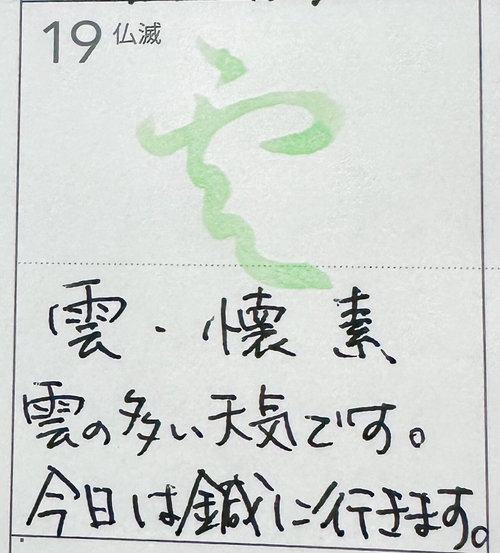 19 仏滅
雲
雲・懐素
雲の多い天気です。
今日は鍼に行きます。